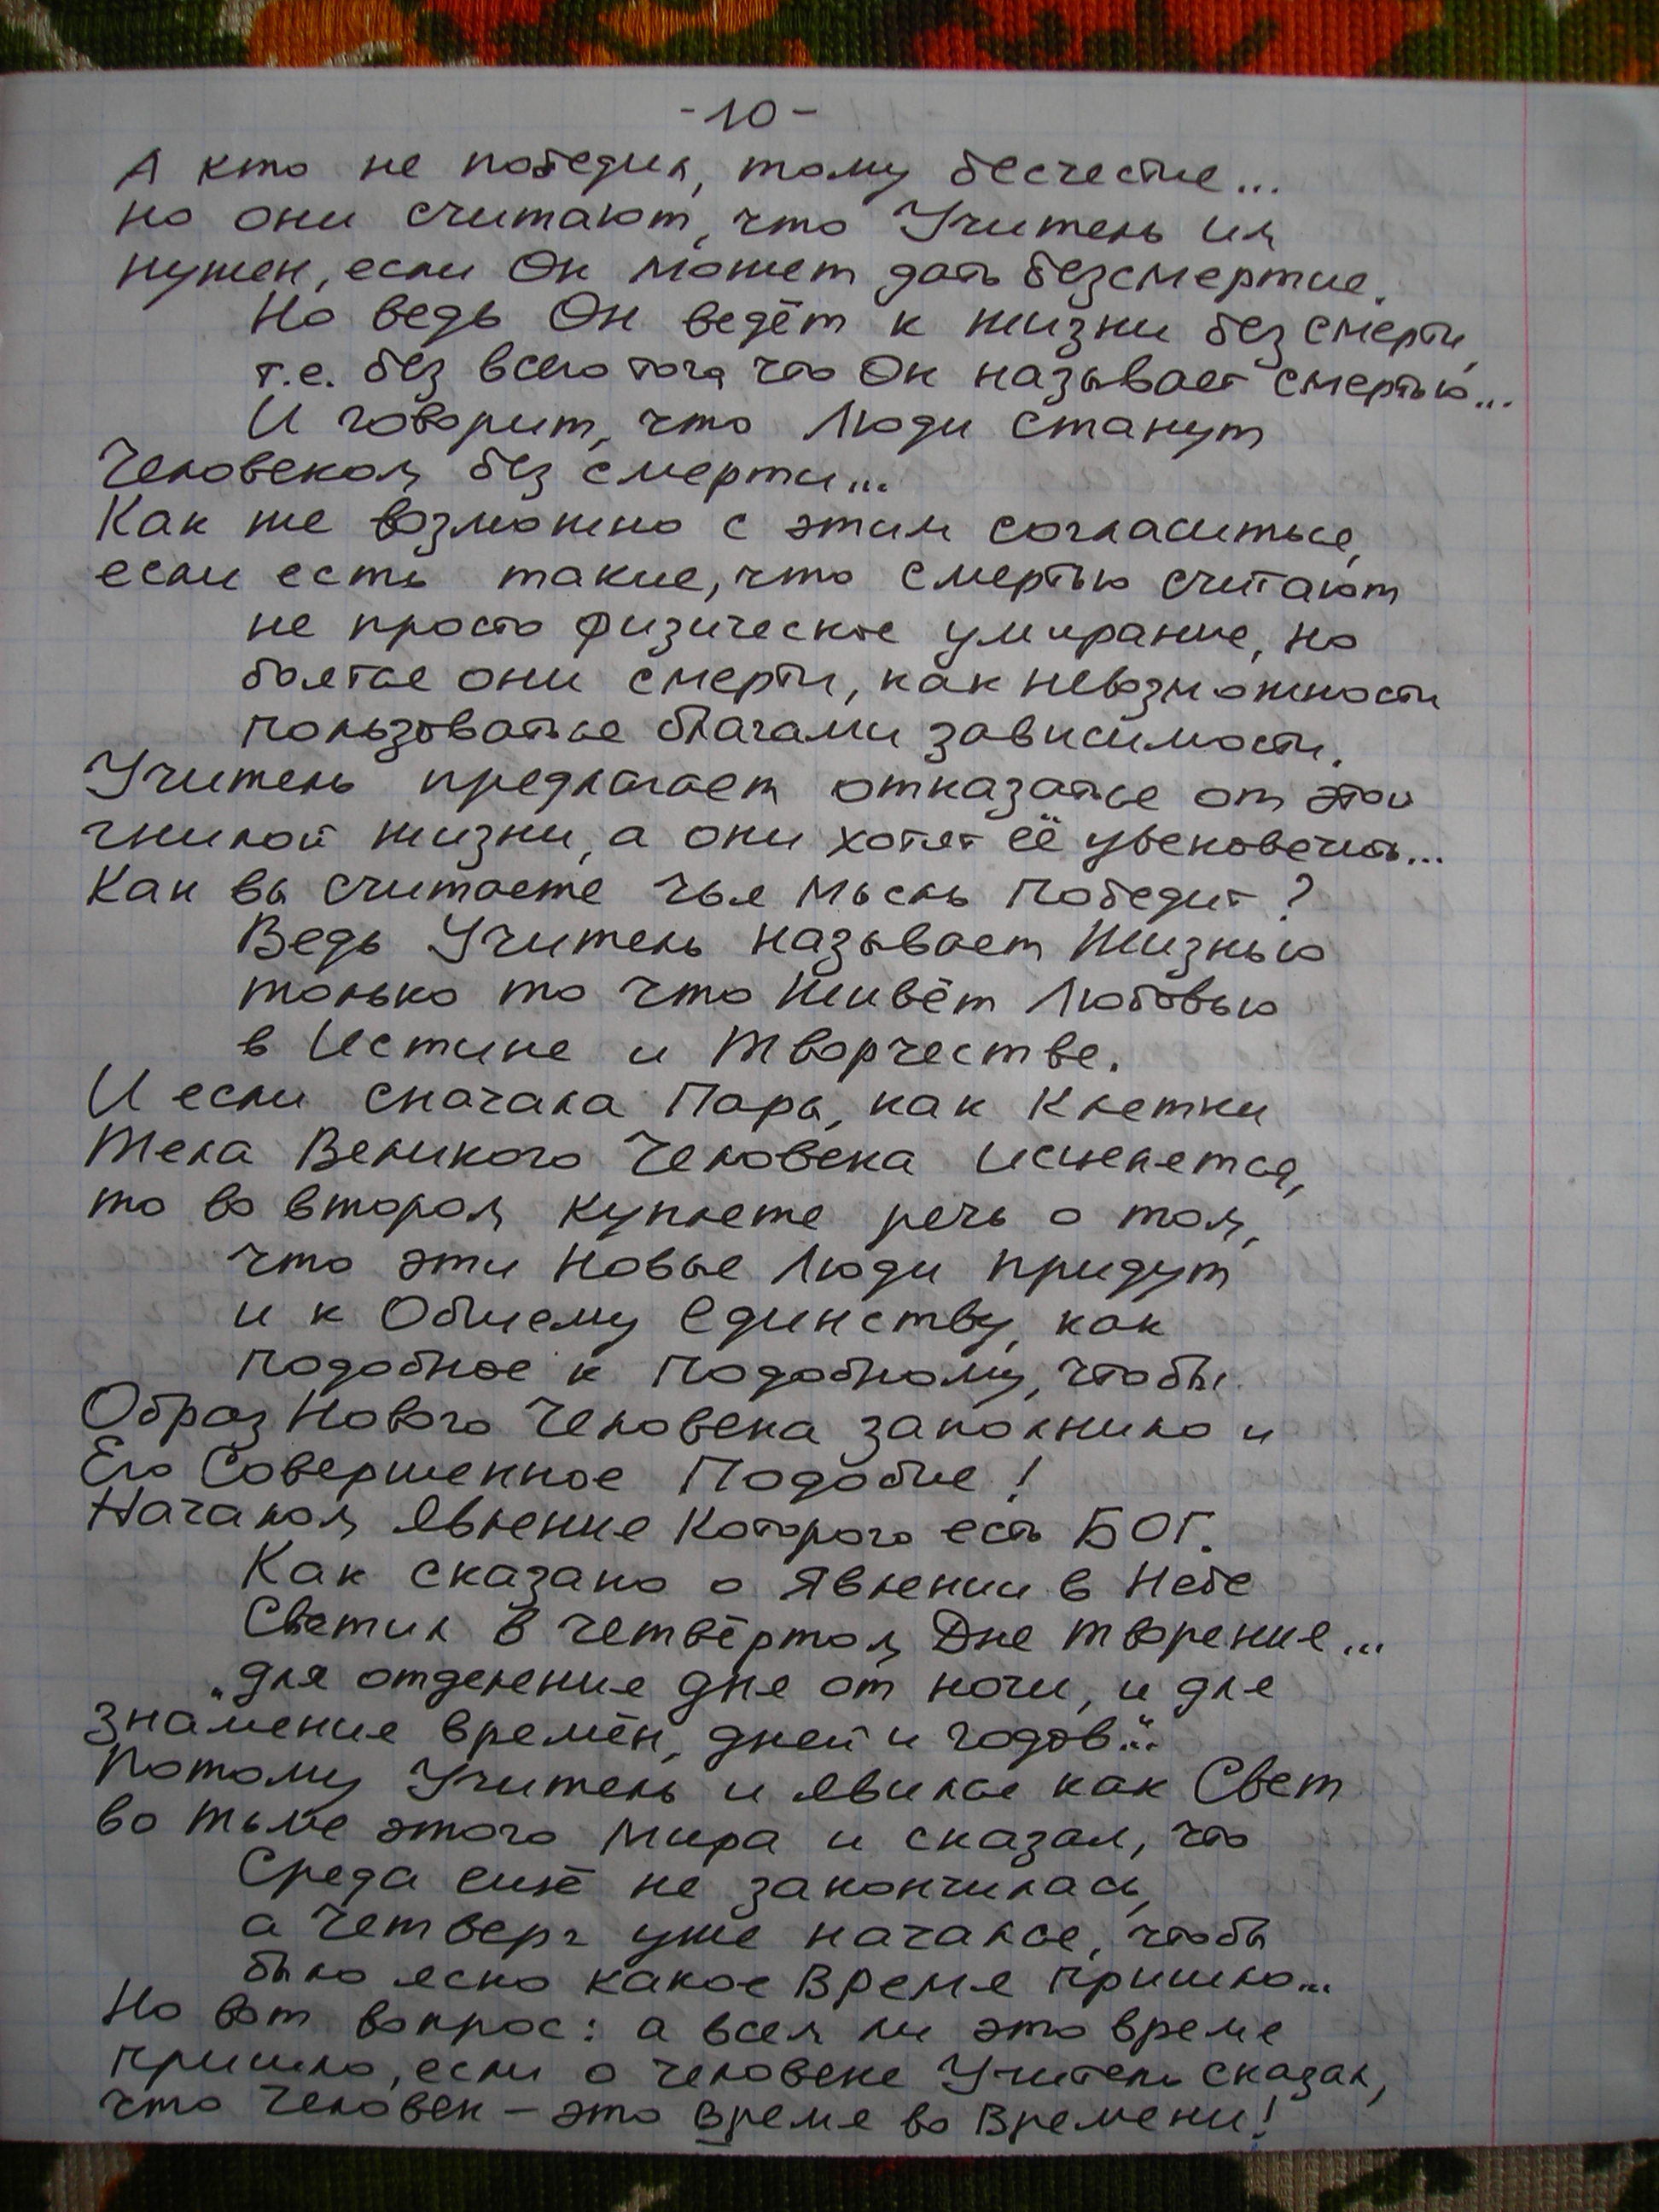 -10-
А кто не победил, тому бесчестие...
но они считают, что Учитель им
нужен, если Он может дать безсмертие.
Но ведь Он ведёт к жизни без смерти,
т.е. без всего того что Он называет смертью...
И говорит, что Люди станут
Человеком без смерти...
Как же возможно с этим согласиться,
если есть такие, что смертью считают
не просто физическое умирание, но
боятся они смерти, как невозможности
пользоваться благами зависимости.
Учитель предлагает отказаться от этой
гнилой жизни, а они хотят её увековечить...
Как вы считаете чья мысль победит?
Ведь Учитель называет Жизнью
только то что Живёт Любовью
в Истине и Творчестве.
И если сначала Пара, как Клетки
Тела Великого Человека исцеляется,
то во втором куплете речь о том,
что эти Новые Люди придут
и к Общему Единству, как
подобное к подобному, чтобы
Образ Нового Человека заполнило и
Его Совершенное Подобие!
Началом Явления Которого есть БОГ.
Как сказано о Явлении в Небе
Светил в четвёртом Дне творения...
„для отделения дня от ночи, и для
знамения времён, дней и годов“...
Потому Учитель и явился как Свет
во тьме этого Мира и сказал, что
Среда ещё не закончилась,
а Четверг уже начался, чтобы
было ясно какое Время пришло...
Но вот вопрос: а всем ли это время
пришло, если о человеке Учитель сказал,
что Человек – это время во Времени!